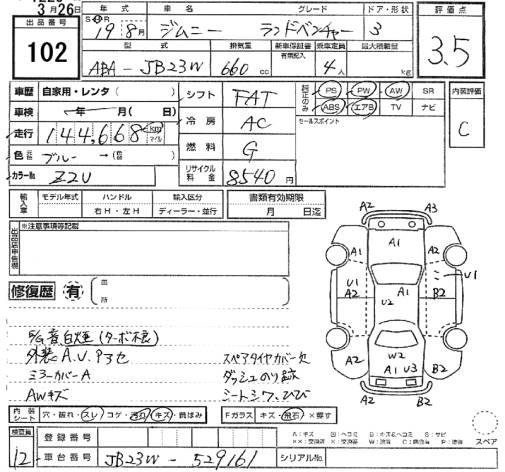 3月26日
出品番号
102
年式 車名 グレード ドア・形状 評価点
19年8月 ジムニー ランドベンチャー 3
3.5
型式 排気量 新車保証書 乗車定員 最大積載量
有無記入
ABA-JB23W 660cc 4人 kg
車歴 自家用・レンタ( )
シフト FAT
PS PW AW SR
ABS エアB TV ナビ
内装評価
C
車検 年 月( 日)
冷房 AC
セールスポイント
走行 144,668km マイル
燃料 G
色 ブルー
リサイクル料金 8540円
カラーNo. Z2U
輸入車
モデル年式 ハンドル 輸入区分
右H・左H ディーラー・並行
書類有効期限
月 日迄
※注意事項等記載
修復歴 有
箇所
A2 A3
A2 A1 A2
A1 U1
U1 A2 U2 A1 B2
W2
A2 A1 U3 B2
A2
E/G音白煙(ターボ不良)
外装A.U.Pヨセ
ミラーカバーA
AWキズ
スペアタイヤカバー欠
ダッシュのり跡
シートシワ、ひび
内装シート 穴・破れ・スレ・コゲ・汚れ・キズ・黄ばみ
Fガラス キズ・飛石・×要す
A:キズ U:ヘコミ B:キズ&ヘコミ S:サビ
スペア
検査員
12
登録番号
車台番号 JB23W-529161
シリアルNo.